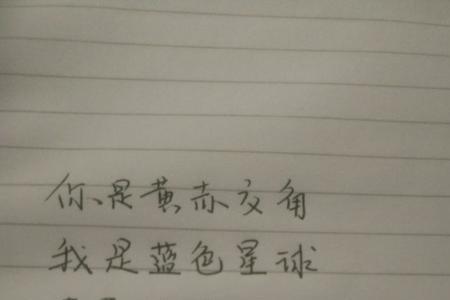 你是黄赤交角
我是蓝色星球